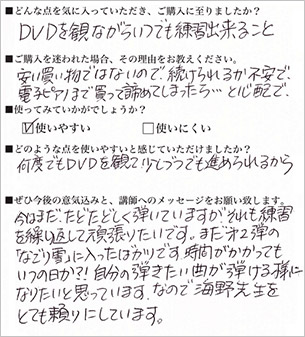 ■どんな点を気に入っていただき、ご購入に至りましたか？
DVDを観ながらいつでも練習出来ること
■ご購入を迷われた場合、その理由をお教えください。
安い買い物ではないので、続けられるか不安で、
電子ピアノまで買って諦めてしまったら…と心配で、
■使ってみていかがでしょうか？
☑使いやすい □使いにくい
■どのような点を使いやすいと感じていただけましたか？
何度でもDVDを観て少しづつでも進められるから
■ぜひ今後の意気込みと、講師へのメッセージをお願い致します。
今はまだ、たどたどしく弾いていますが、それも練習
を繰り返して頑張りたいです。まだ第2弾の
なごり雪に入ったばかりです。時間がかかっても
いつの日か?!自分の弾きたい曲が弾ける様に
なりたいと思っています。なので海野先生を
とても頼りにしています。